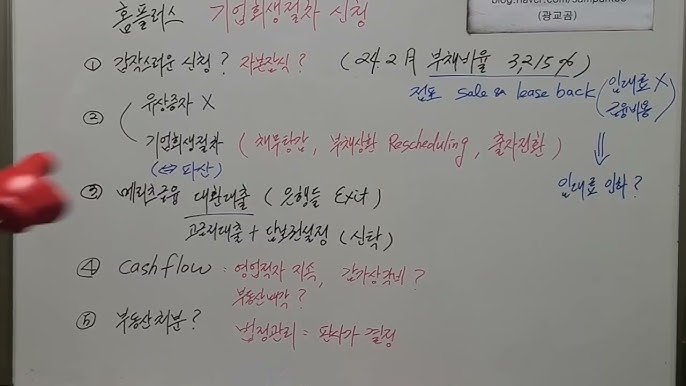 blog.naver.com/sampamoo
(광교곰)
홈플러스 기업회생절차 신청
① 갑작스러운 신청? 자본잠식? (24.2月 부채비율 3,215%)
점포 sale & lease back (임대료 X
금융비용
② 유상증자 X
기업회생절차 (채무탕감, 부채상환 Rescheduling, 출자전환)
(↔ 파산)
⇓
임대료 인하?
③ 메리츠금융 대환대출 (은행들 Exit)
고금리대출 + 담보권설정 (신탁)
④ cashflow : 영업적자 지속, 감가상각비?
부동산매각?
⑤ 부동산처분?
법정관리 = 판사가 결정